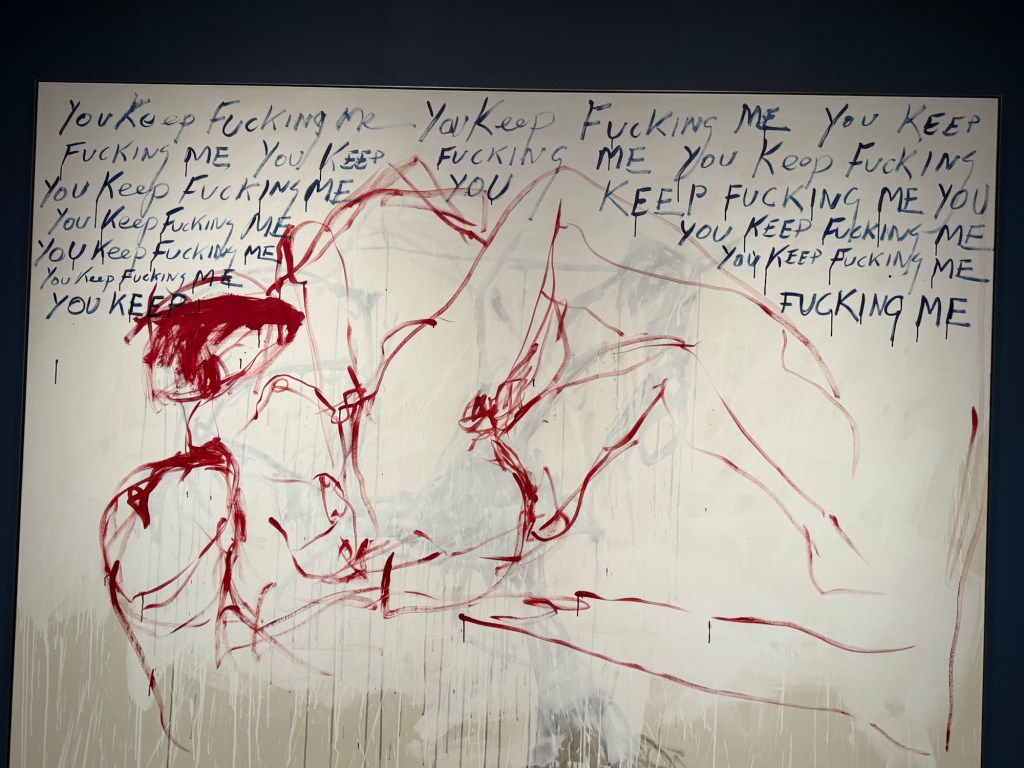 You Keep Fucking Me You Keep Fucking ME You KEEP
FUCKING ME You KEEP FUCKING ME You Keep Fucking
You Keep FUCKING ME YOU KEEP FUCKING ME YOU
You Keep Fucking ME YOU KEEP FUCKING ME
YOU Keep Fucking ME YOU KEEP FUCKING ME
You Keep Fucking ME
YOU KEEP FUCKING ME